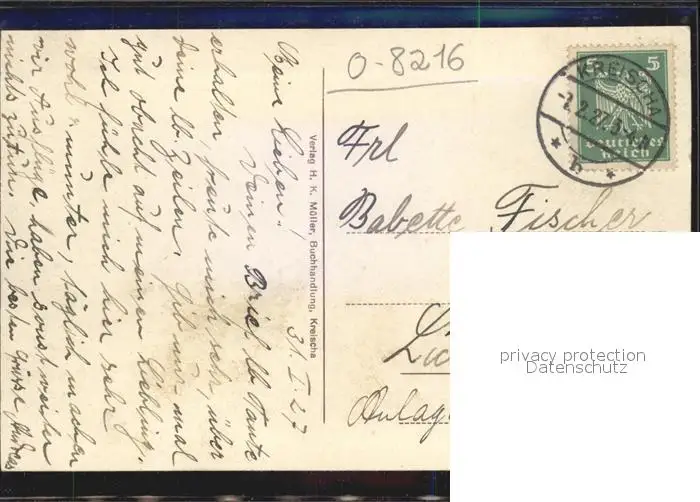 31. I. 27
Meine Lieben!
Deinen Brief lb. Tante
erhalten, freute mich sehr, über
deine lb. Zeilen. Gib nur mal
gut obacht auf meinen Liebling.
Ich fühle mich hier sehr
wohl & munter, täglich machen
wir Ausflüge, haben sonst weiter
nichts zu tun. Die besten Grüsse
Verlag H. K. Müller, Buchhandlung, Kreischa
O-8216
KREISCHA
5
Deutsches
Reich
Frl
Babette Fischer
privacy protection
Datenschutz